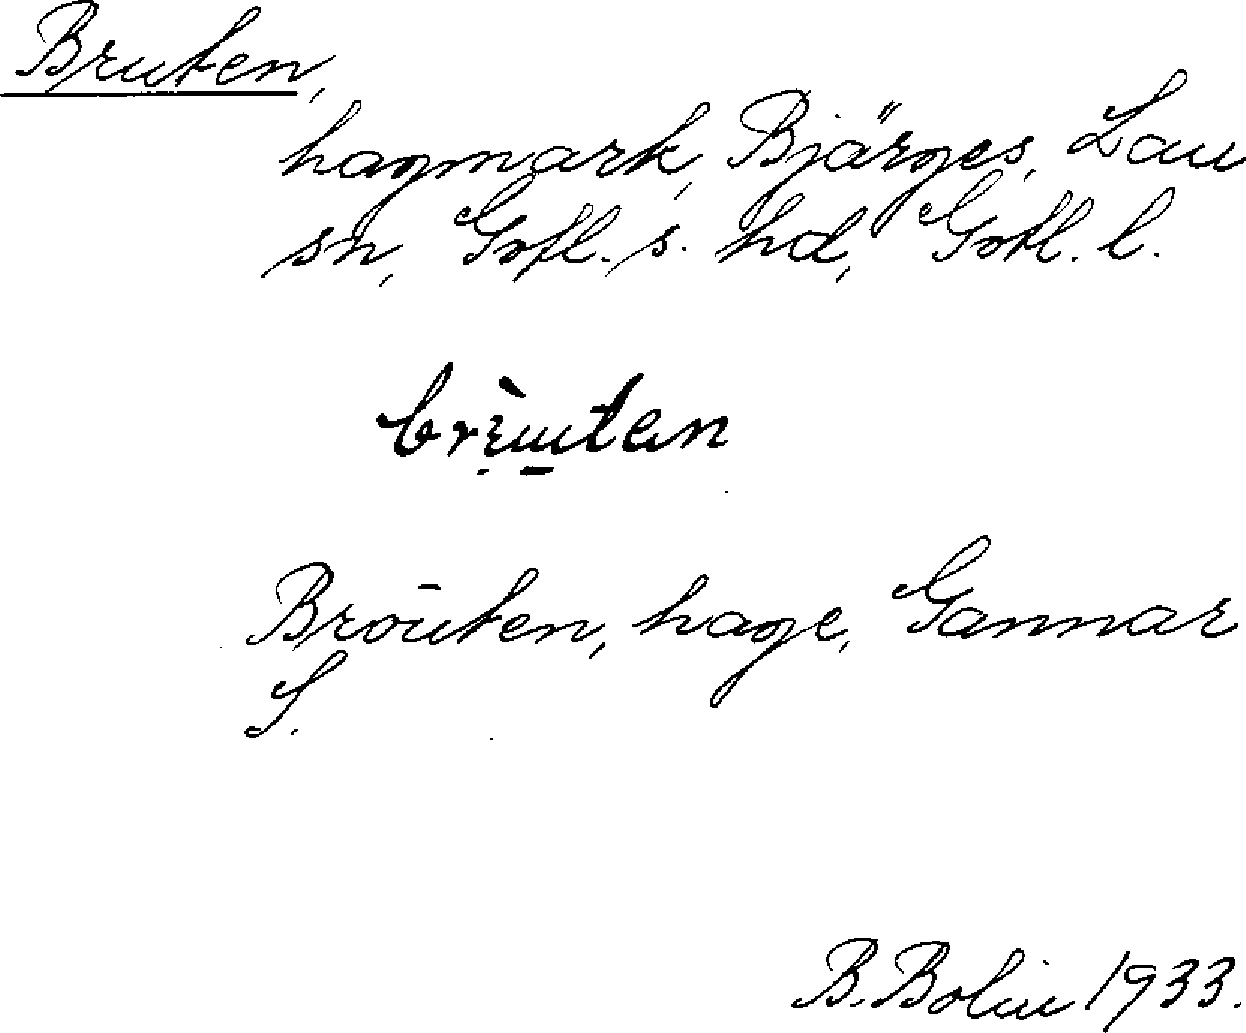 Bruten,
hagmark, Bjärges, Lau
sn, Gotl. s. hd, Gotl. l.
Broūten, hage, Gannar
S.
B. Bolin 1933.